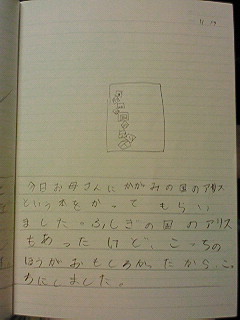 11/7
今日お母さんに かがみの国のアリス
という本をかって もらい
ました。ふしぎの国 のアリス
もあった けど、こっちの
ほうがおもしろかったから、こ
れにしました。